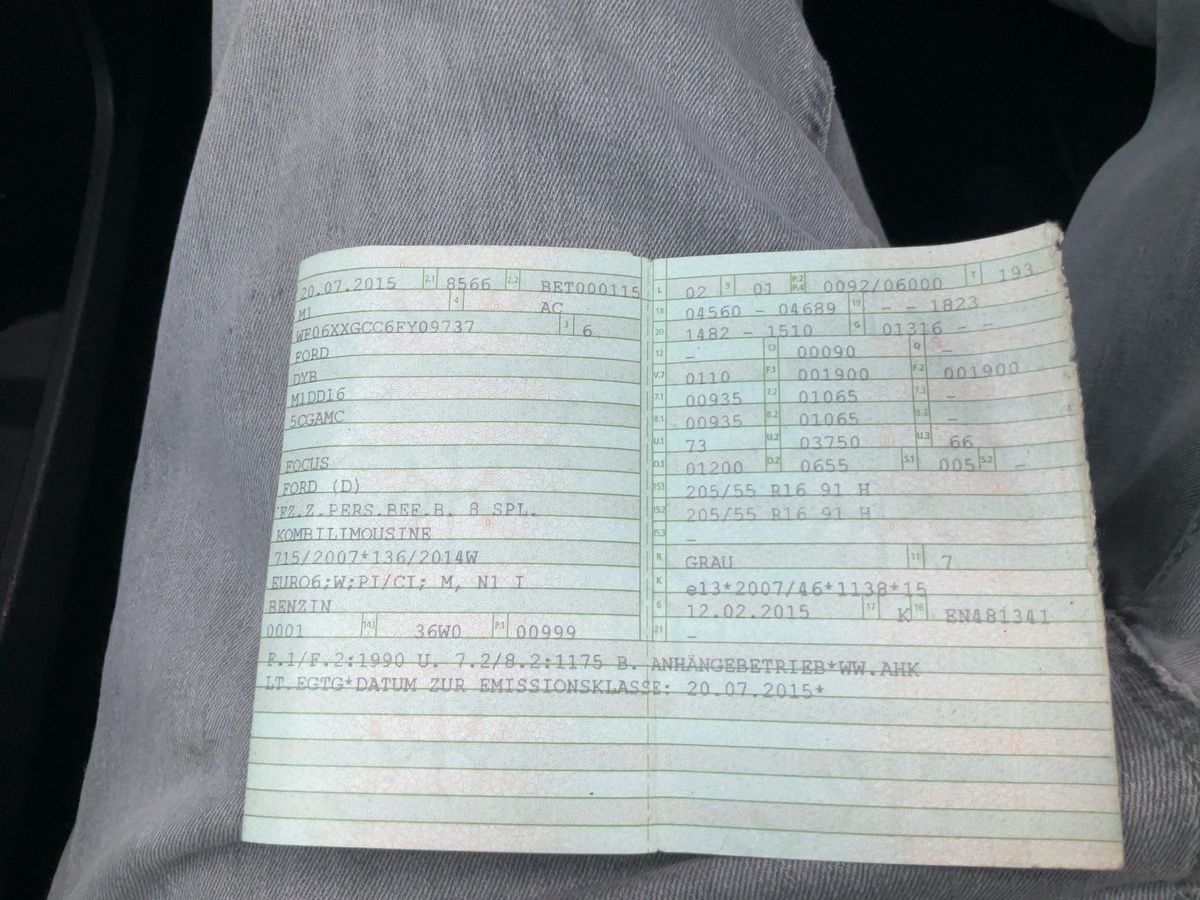 20.07.2015 2.1 8566 2.2 BET000115
M1 4 AC
WF06XXGCC6FY09737 3 6
FORD
DYB
M1DD16
5CGAMC
FOCUS
FORD (D)
FZ.Z.PERS.BEF.B. 8 SPL.
KOMBILIMOUSINE
715/2007*136/2014W
EURO6;W;PI/CI; M, N1 I
BENZIN
0001 14.1 36W0 P.1 00999
L 02 9 01 P.2 P.4 0092/06000 T 193
18 04560 - 04689 19 - - 1823
20 1482 - 1510 G 01316 - -
12 - 13 00090 Q -
V.7 0110 F.1 001900 F.2 001900
7.1 00935 7.2 01065 7.3 -
8.1 00935 8.2 01065 8.3 -
U.1 73 U.2 03750 U.3 66
O.1 01200 O.2 0655 S.1 005 S.2 -
15.1 205/55 R16 91 H
15.2 205/55 R16 91 H
15.3 -
R GRAU 11 7
K e13*2007/46*1138*15
6 12.02.2015 17 K 16 EN481341
21 -
F.1/F.2:1990 U. 7.2/8.2:1175 B. ANHÄNGEBETRIEB*WW.AHK
LT.EGTG*DATUM ZUR EMISSIONSKLASSE: 20.07.2015*